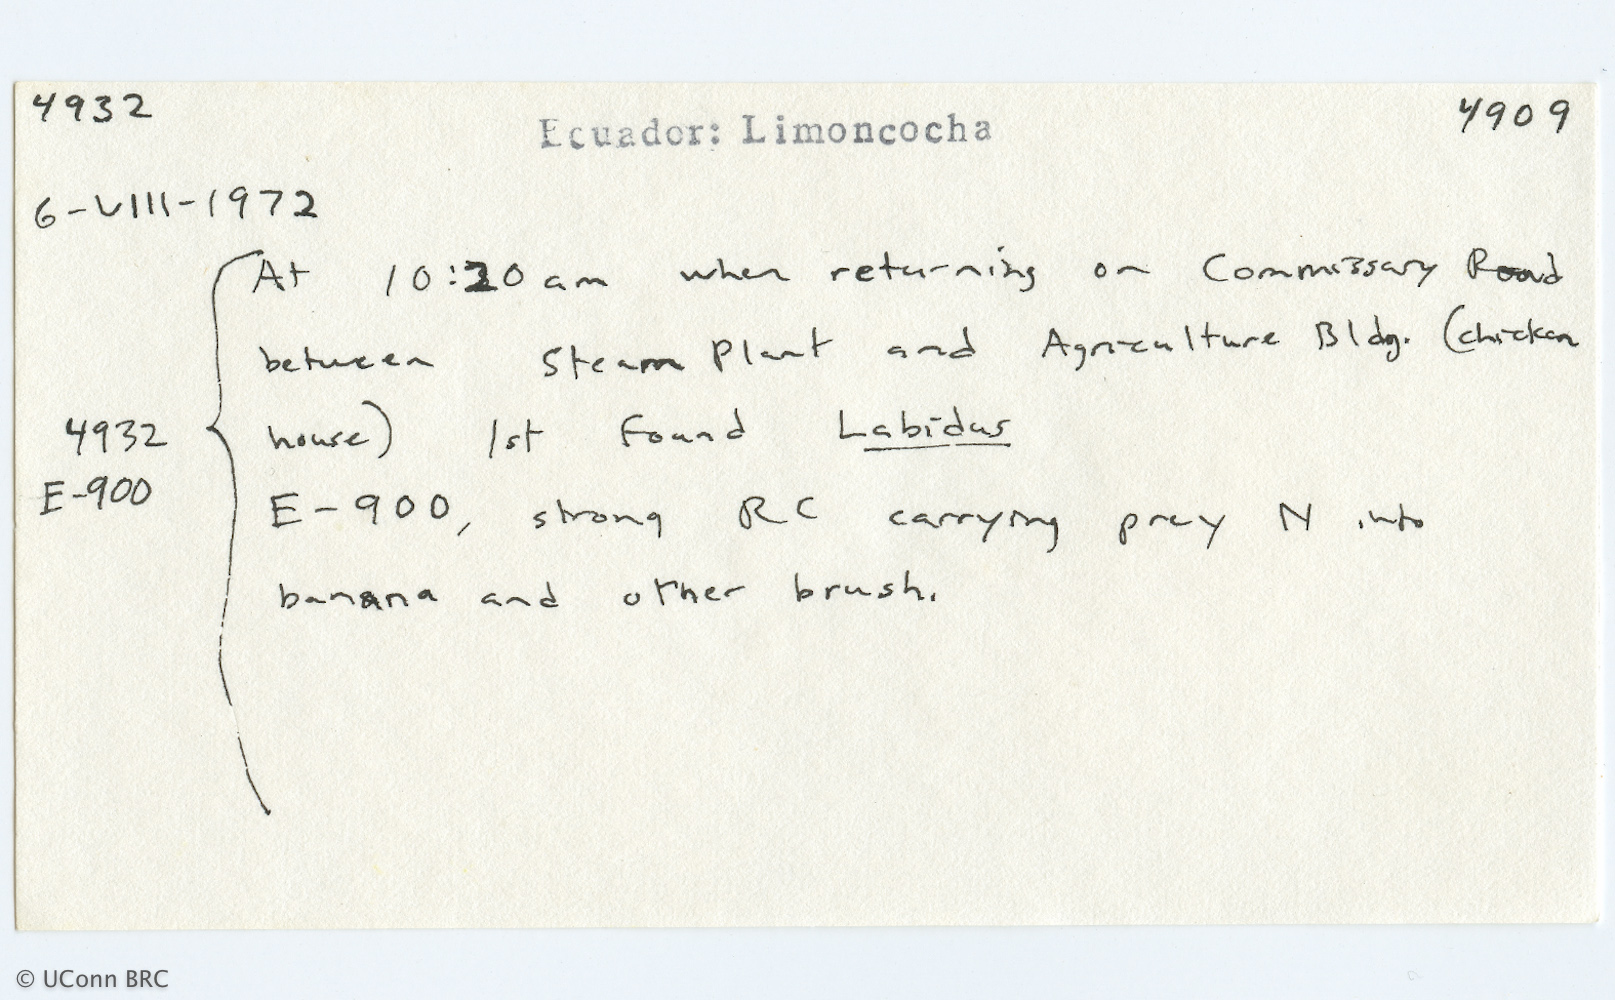 4932
Ecuador: Limoncocha
4909
6-VIII-1972
At 10:20 am when returning on Commissary Road
between Steam Plant and Agriculture Bldg. (chicken
4932 house) 1st found Labidus
E-900 E-900, strong RC carrying prey N into
banana and other brush.
© UConn BRC